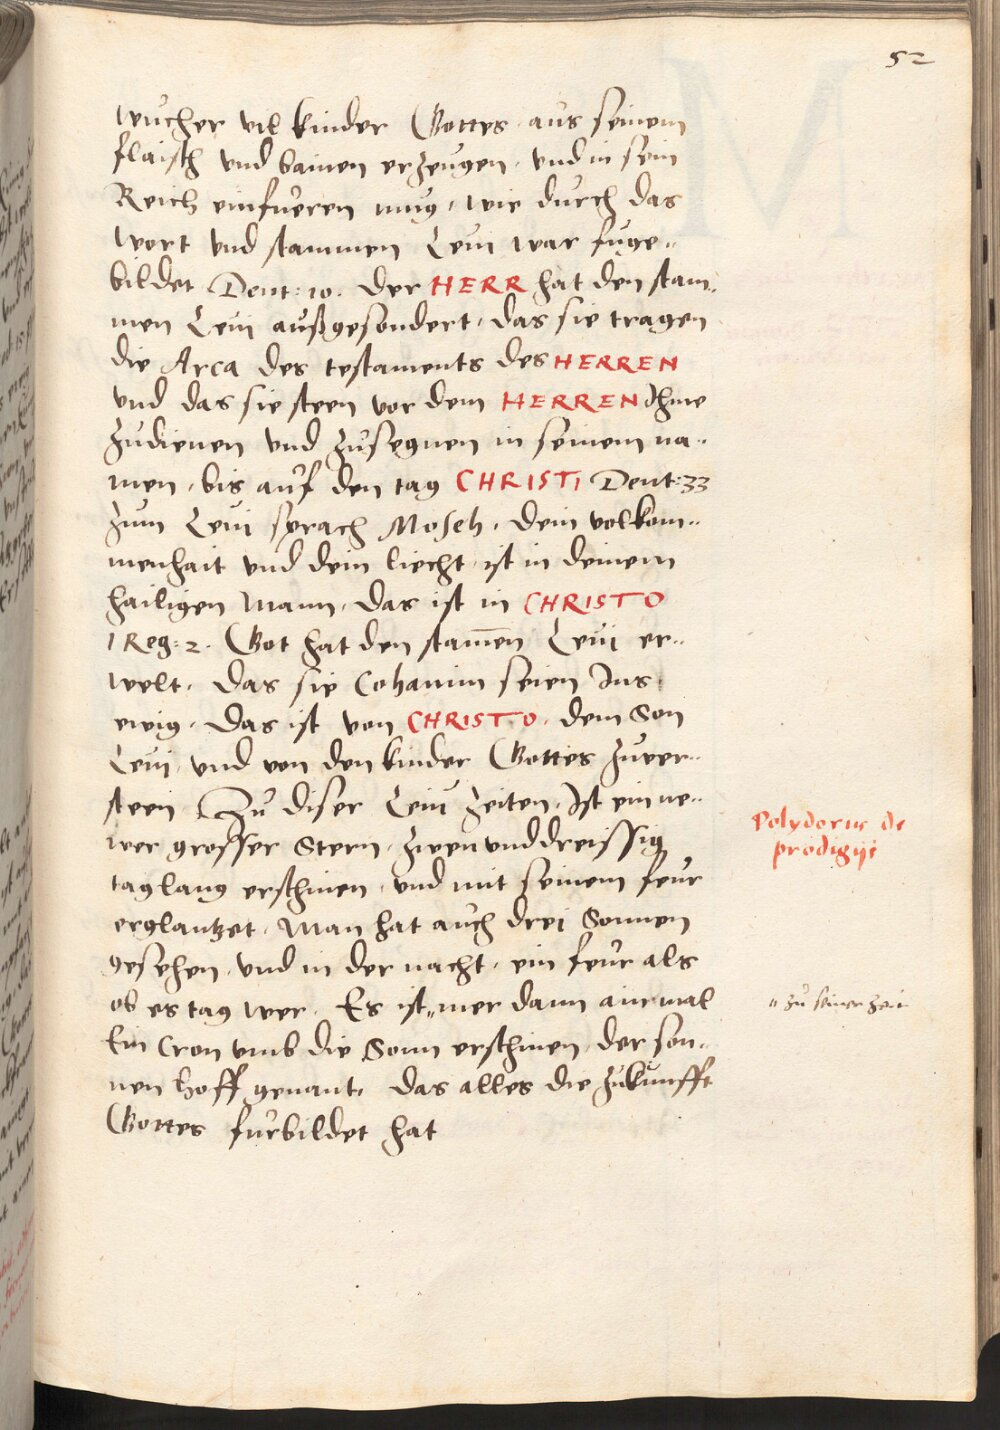 52
wucher vil kinder Gottes aus seinem
flaisch vnd bainen erzeugen, vnd in sein
Reich einfueren mug, wie durch das
wort vnd stammen Leui war fuge„
bildet Deut: 10. der HERR hat den stam„
men Leui außgesondert, das sie tragen
die Arca des testaments des HERREN
vnd das sie steen vor dem HERREN Ihme
zudienen vnd zusegnen in seinem na„
men, bis auf den tag CHRISTI Deut: 33
zum Leui sprach Moseh, dein volkom„
menhait vnd dein liecht ist in deinem
hailigen Mann, das ist in CHRISTO
1 Reg: 2. Got hat den stam̄en Leui er„
welt, das sie Cohanim seien Ins
ewig, das ist von CHRISTO, dem Son
Leui, vnd von den kinder Gottes zuver„
steen Zu diser Leui zeiten, Ist ein ne„
wer grosser Stern, zwenunddreissig
taglang erschinen, vnd mit seinem feur
erglantzet, Man hat auch drei Sonnen
gesehen, vnd in der nacht, ein feur als
ob es tag wer, Es ist„ mer dann ainmal
Ein Cron vmb die Sonn erschinen, der son„
nen hoff genant, das alles die zukunfft
Gottes furbildet hat
Polydorus de
prodigiji
„ zu seiner zeit